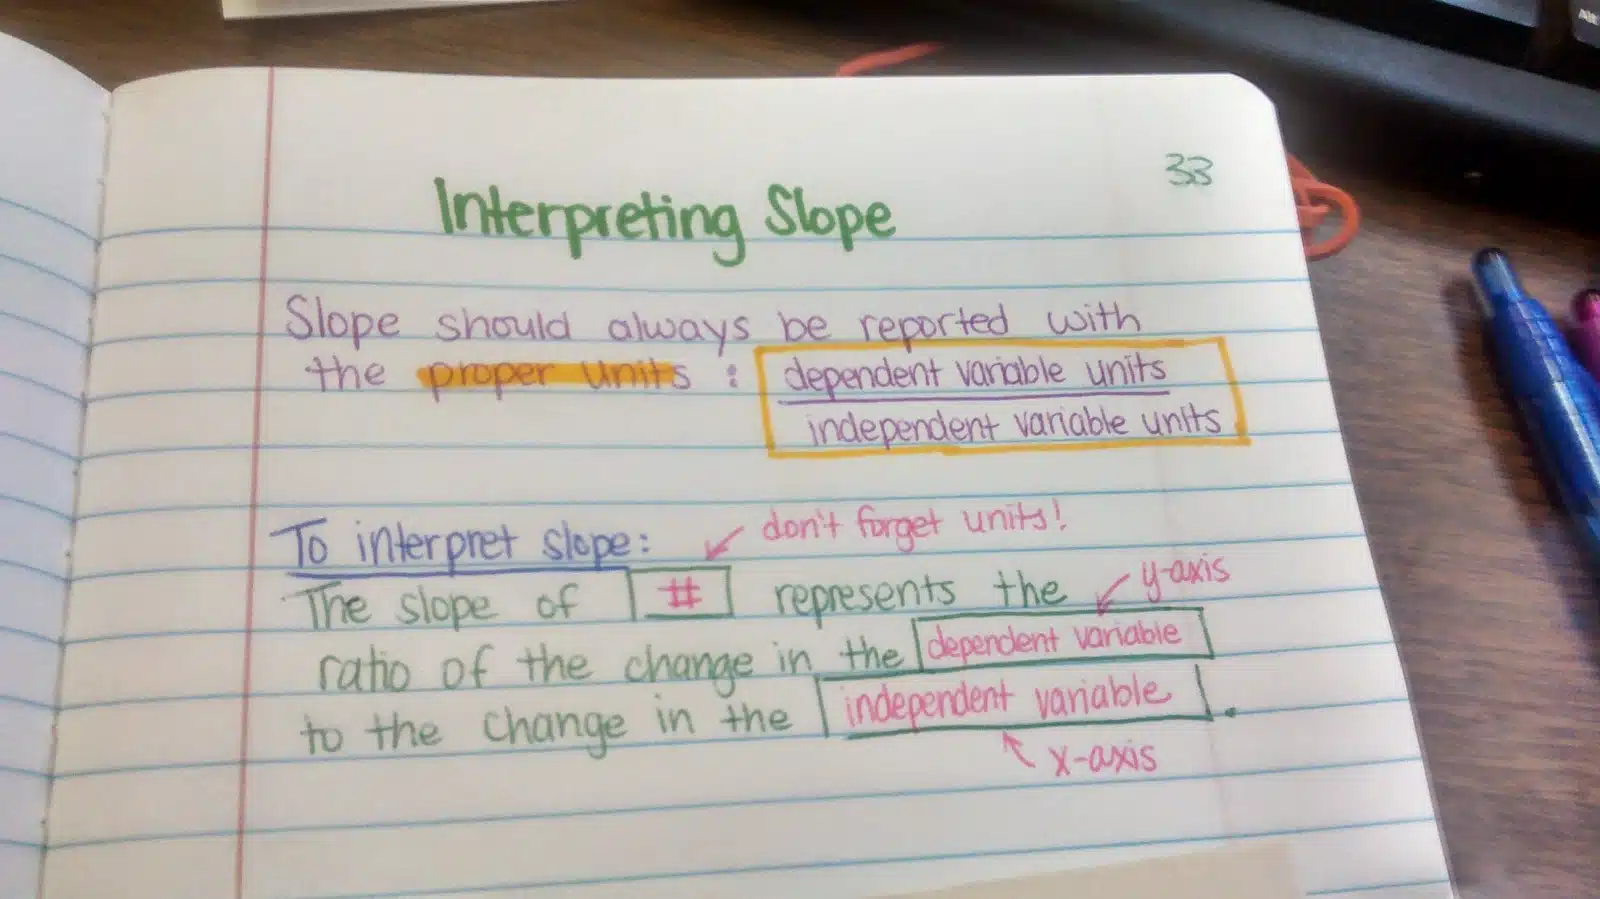 33
Interpreting Slope
Slope should always be reported with
the proper units : dependent variable units
independent variable units
To interpret slope:
don't forget units!
The slope of # represents the
y-axis
ratio of the change in the dependent variable
to the change in the independent variable.
x-axis
Alt